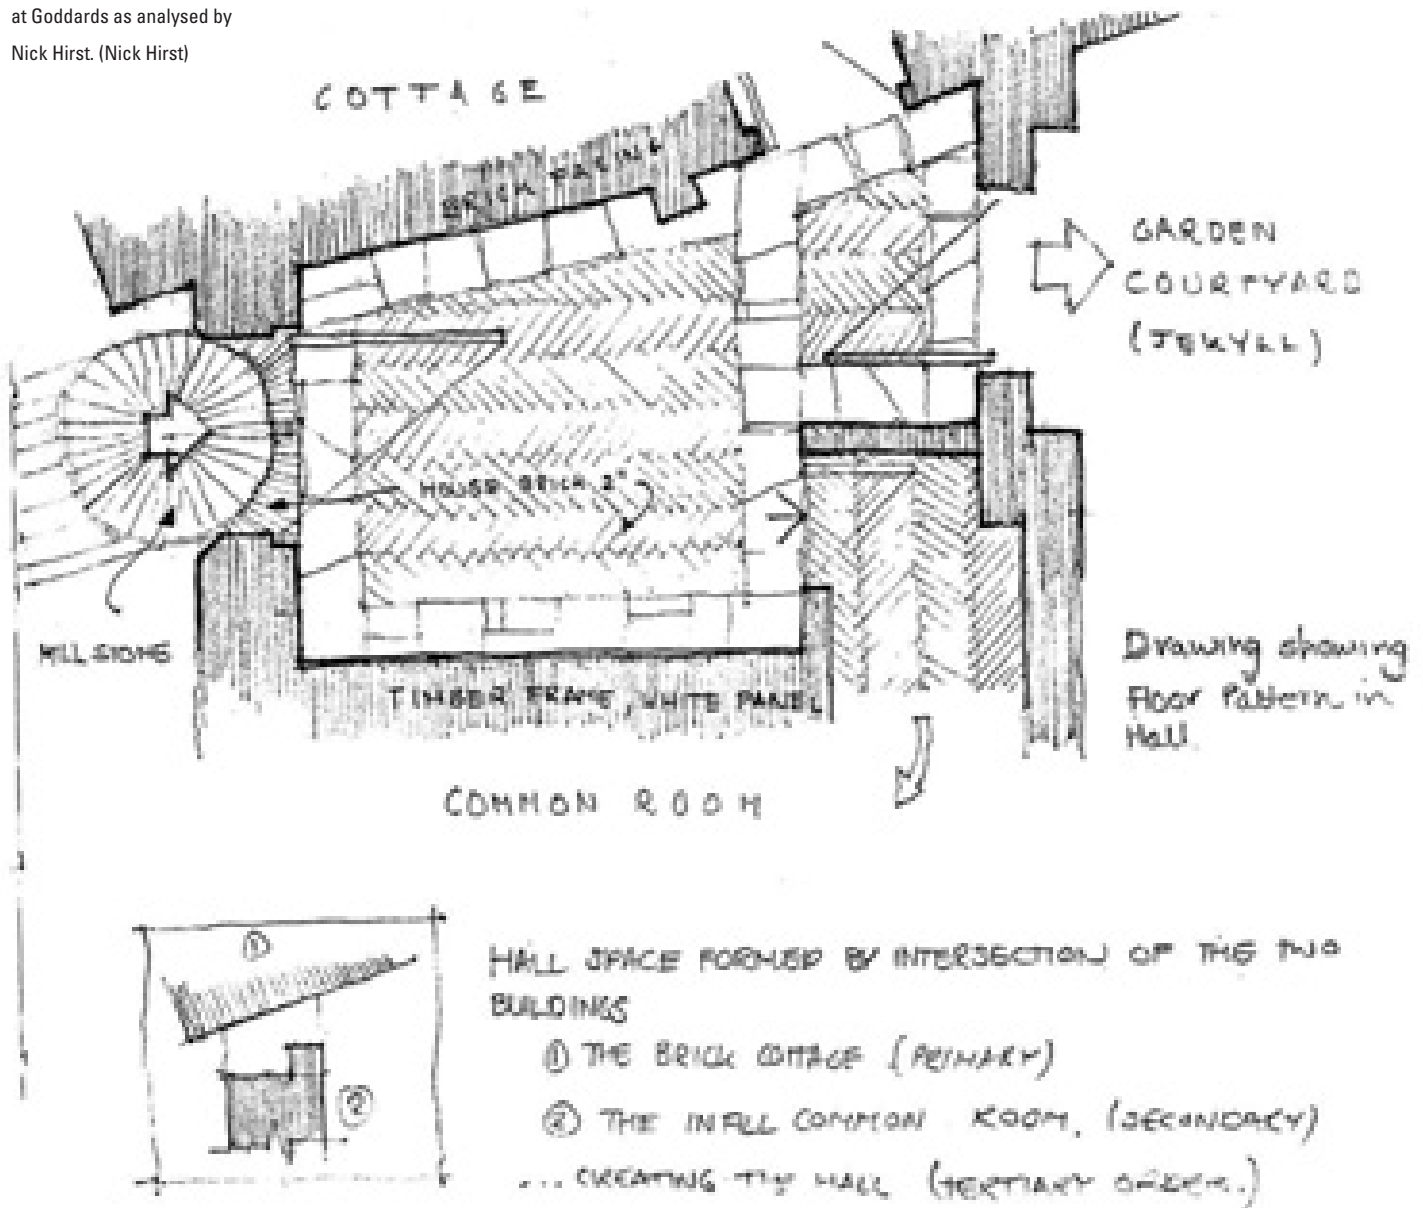 at Goddards as analysed by
Nick Hirst. (Nick Hirst)
COTTAGE
BRICK FACING
GARDEN
COURTYARD
(JEKYLL)
HOUSE BRICK 2"
MILLSTONE
TIMBER FRAME, WHITE PANEL
Drawing showing
Floor Pattern in
Hall.
COMMON ROOM
①
②
HALL SPACE FORMED BY INTERSECTION OF THE TWO
BUILDINGS
① THE BRICK COTTAGE (PRIMARY)
② THE INFILL COMMON ROOM. (SECONDARY)
... CREATING THE HALL (TERTIARY ORDER.)